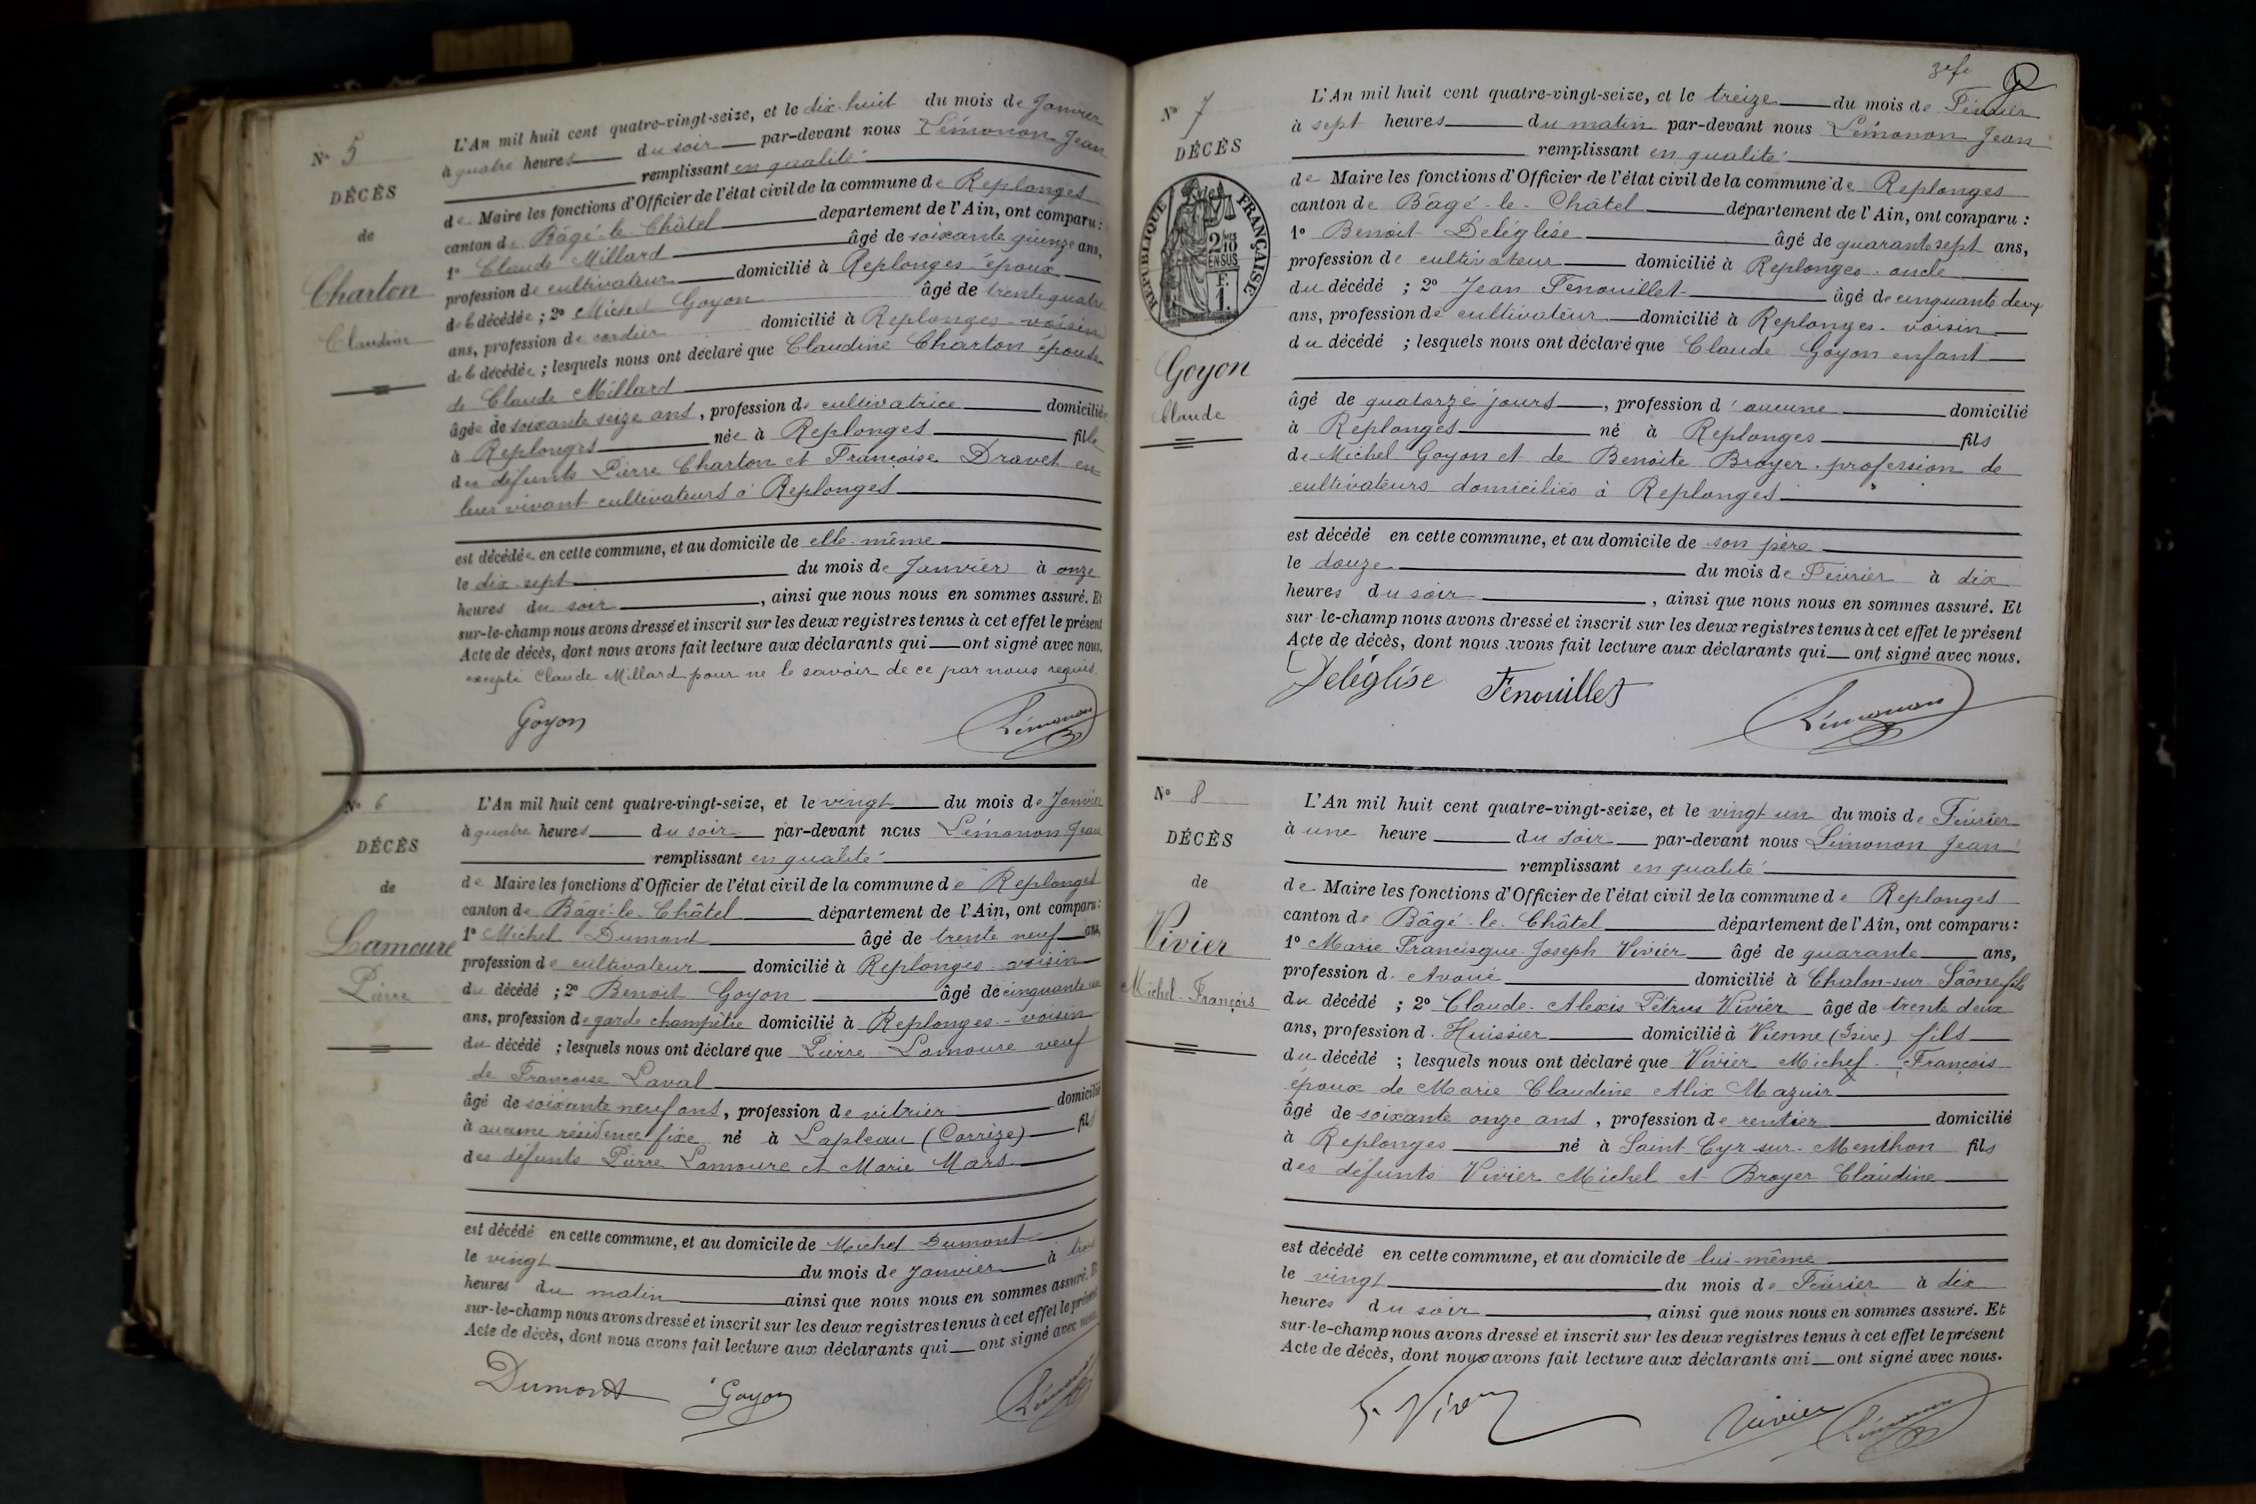 N° 5
DÉCÈS
de
Charton
Claudine
L'An mil huit cent quatre-vingt-seize, et le dix-huit du mois de Janvier
à quatre heures du soir par-devant nous Lémonon Jean
remplissant en qualité
de Maire les fonctions d'Officier de l'état civil de la commune de Replonges
canton de Bâgé-le-Châtel département de l'Ain, ont comparu :
1° Claude Millard âgé de soixante quinze ans,
profession de cultivateur domicilié à Replonges époux
de la décédée ; 2° Michel Goyon âgé de trente quatre
ans, profession de cordier domicilié à Replonges - voisin
de la décédée ; lesquels nous ont déclaré que Claudine Charton épouse
de Claude Millard
âgée de soixante seize ans, profession de cultivatrice domiciliée
à Replonges née à Replonges fille
des défunts Pierre Charton et Françoise Dravet en
leur vivant cultivateurs à Replonges
est décédée en cette commune, et au domicile de elle-même
le dix sept du mois de Janvier à onze
heures du soir, ainsi que nous nous en sommes assuré. Et
sur-le-champ nous avons dressé et inscrit sur les deux registres tenus à cet effet le présent
Acte de décès, dont nous avons fait lecture aux déclarants qui ont signé avec nous.
excepté Claude Millard pour ne le savoir de ce par nous requis.
Goyon Lémonon
N° 6
DÉCÈS
de
Lamoure
Pierre
L'An mil huit cent quatre-vingt-seize, et le vingt du mois de Janvier
à quatre heures du soir par-devant nous Lémonon Jean
remplissant en qualité
de Maire les fonctions d'Officier de l'état civil de la commune de Replonges
canton de Bâgé-le-Châtel département de l'Ain, ont comparu :
1° Michel Dumont âgé de trente neuf ans,
profession de cultivateur domicilié à Replonges - voisin
du décédé ; 2° Benoit Goyon âgé de cinquante
ans, profession de garde champêtre domicilié à Replonges - voisin
du décédé ; lesquels nous ont déclaré que Pierre Lamoure veuf
de Francoise Laval
âgé de soixante neuf ans, profession de vitrier domicilié
à aucune résidence fixe né à Lapleau (Corrèze) fils
des défunts Pierre Lamoure et Marie Mars
est décédé en cette commune, et au domicile de Michel Dumont
le vingt du mois de Janvier à trois
heures du matin ainsi que nous nous en sommes assuré. Et
sur-le-champ nous avons dressé et inscrit sur les deux registres tenus à cet effet le présent
Acte de décès, dont nous avons fait lecture aux déclarants qui ont signé avec nous.
Dumont Goyon Lémonon
N° 7
DÉCÈS
RÉPUBLIQUE FRANÇAISE
2/10 EN SUS
F. 1.
Goyon
Claude
L'An mil huit cent quatre-vingt-seize, et le treize du mois de Février
à sept heures du matin par-devant nous Lémonon Jean
remplissant en qualité
de Maire les fonctions d'Officier de l'état civil de la commune de Replonges
canton de Bâgé-le-Châtel département de l'Ain, ont comparu :
1° Benoit Deléglise âgé de quarante sept ans,
profession de cultivateur domicilié à Replonges - oncle
du décédé ; 2° Jean Fenouillet âgé de cinquante deux
ans, profession de cultivateur domicilié à Replonges - voisin
du décédé ; lesquels nous ont déclaré que Claude Goyon enfant
âgé de quatorze jours, profession d'aucune domicilié
à Replonges né à Replonges fils
de Michel Goyon et de Benoite Broyer, profession de
cultivateurs domiciliés à Replonges
est décédé en cette commune, et au domicile de son père
le douze du mois de Février à dix
heures du soir, ainsi que nous nous en sommes assuré. Et
sur-le-champ nous avons dressé et inscrit sur les deux registres tenus à cet effet le présent
Acte de décès, dont nous avons fait lecture aux déclarants qui ont signé avec nous.
Deléglise Fenouillet Lémonon
N° 8
DÉCÈS
de
Vivier
Michel-François
L'An mil huit cent quatre-vingt-seize, et le vingt un du mois de Février
à une heure du soir par-devant nous Lémonon Jean
remplissant en qualité
de Maire les fonctions d'Officier de l'état civil de la commune de Replonges
canton de Bâgé-le-Châtel département de l'Ain, ont comparu :
1° Marie Francisque Joseph Vivier âgé de quarante ans,
profession d. Avoué domicilié à Chalon-sur-Saône fils
du décédé ; 2° Claude-Alexis Pétrus Vivier âgé de trente deux
ans, profession d. Huissier domicilié à Vienne (Isère) fils
du décédé ; lesquels nous ont déclaré que Vivier Michel-François
époux de Marie Claudine Alix Mazuir
âgé de soixante onze ans, profession de rentier domicilié
à Replonges né à Saint-Cyr-sur-Menthon fils
des défunts Vivier Michel et Broyer Claudine
est décédé en cette commune, et au domicile de lui-même
le vingt du mois de Février à dix
heures du soir, ainsi que nous nous en sommes assuré. Et
sur-le-champ nous avons dressé et inscrit sur les deux registres tenus à cet effet le présent
Acte de décès, dont nous avons fait lecture aux déclarants qui ont signé avec nous.
Vivier Lémonon